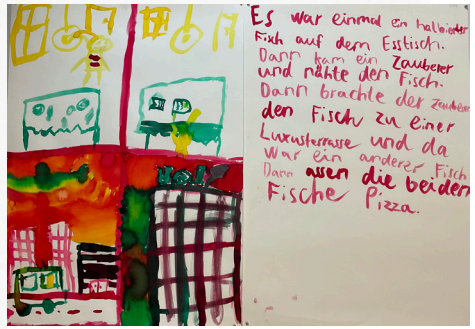 Es war einmal ein halbierter
Fisch auf dem Esstisch.
Dann kam ein Zauberer
und nähte den Fisch.
Dann brachte der Zauberer
den Fisch zu einer
Luxusterrasse und da
war ein anderer Fisch
Dann assen die beiden
Fische Pizza.